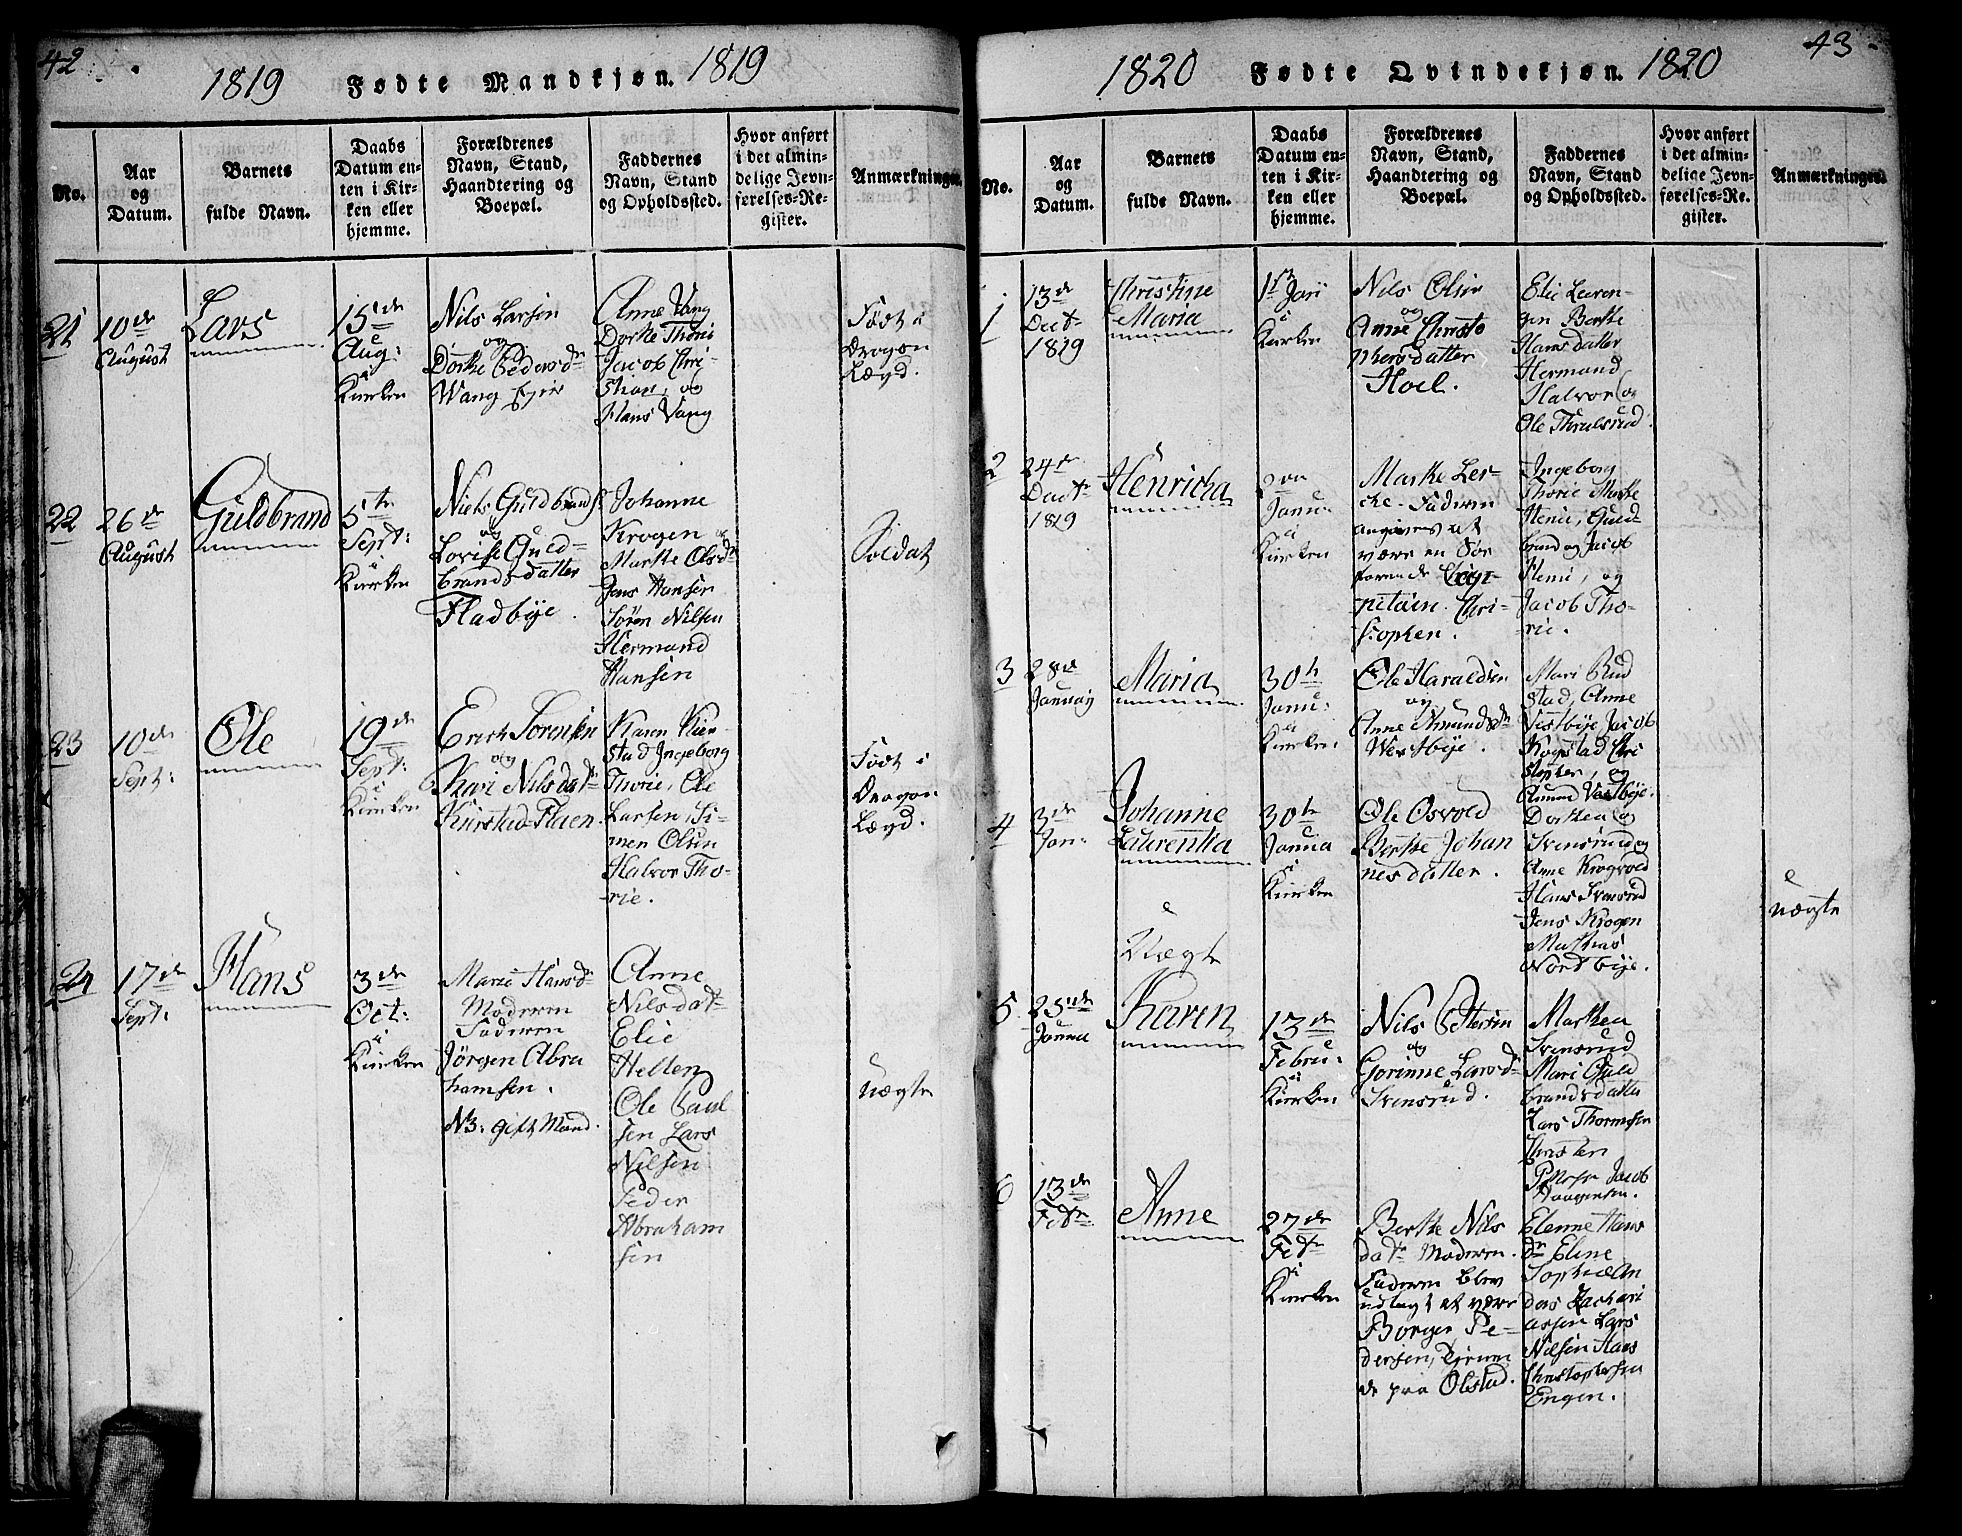 42
1819 Fødte Mandkjøn. 1819
No.
Aar
og
Datum.
Barnets
fulde Navn.
Daabs
Datum en-
ten i Kir-
ken eller
hjemme.
Forældrenes
Navn, Stand,
Haandtering og
Boepæl.
Faddernes
Navn, Stand
og Opholdssted.
Hvor anført
i det almin-
delige Jevn-
førelses-Re-
gister.
Anmærkninger.
21
10de
August
Lars
15de
Aug:
i
Kirken
Nils Larsen
og
Dorthe Pedersdr
Wang Eyer
Anne Vang
Dorthe Thoni
Jacob Chri-
stian, og
Hans Vang
Født i
Dragon
Lægd.
22
26de
August
Guldbrand
5te
Sept:
i
Kirken
Niels Guldbrands.
og
Lovise Guld-
brandsdatter
Fladbye.
Johanne
Krogen og
Marthe Olsdr
Jens Hansen
Søren Nilsen
Hermand
Hansen
Soldat
23
10de
Sept:
Ole
19de
Sept:
i
Kirken
Erich Sorensen
og
Kari Nilsdatr
Kierstad Flaen.
Karen Kier-
stad Ingeborg
Thorie, Ole
Larsen, Si-
men Olsen
Halvor Tho-
rie.
Født i
Dragon
Lægd.
24
17de
Sept:
Hans
3de
Oct:
i
Kirken
Marie Hansdr
Moderen
Faderen
Jörgen Abra
hamsen.
NB: gift Mand.
Anne
Nilsdatr
Elie
Hellen
Ole Paul
sen Lars
Nilsen
Peder
Abraham
sen
uægte
43
1820 Fødte Qvindekjøn. 1820
No.
Aar
og
Datum.
Barnets
fulde Navn.
Daabs
Datum en-
ten i Kir-
ken eller
hjemme.
Forældrenes
Navn, Stand,
Haandtering og
Boepæl.
Faddernes
Navn, Stand
og Opholdssted.
Hvor anført
i det almin-
delige Jevn-
førelses-Re-
gister.
Anmærkninger.
1
13de
Dect
1819
Christine
Maria
1st Jan
i
Kirken
Nils Olsen
og
Anne Christo
phersdatter
Hoel.
Elie Lauren-
gen Berthe
Hansdatter
Hermand
Halvor og
Ole Thrulsrud
2
24de
Dect
1819
Henricha
Janu-
i
Kirken
Marthe Ler-
che. Faderen
angives at
være en Sør
farende Cap-
pitain. Chri-
stopher.
Ingeborg
Thorie Marthe
Henie, Guld-
brand og Jacob
Henie, og
Jacob Tho-
rie.
3
28de
Januay
Maria
30te
Janu:
i
Kirken
Ole Haraldsen
og
Anne Amundsdr
Westbye.
Mari Rud
stad, Anne
Vestbye Jacob
Kogstad Chri
stopher, og
Amund Vestbye.
4
3de
Jan:
Johanne
Laurentia
Uægte
30te
Janua
i
Kirken
Ole Osvold
Berthe Johan
nesdatter.
Dorthea
Svensrud og
Anne Krogvold
Hans Svensrud
Jens Krogen
Mathias
Nordbye.
uægte
5
25de
Janua
Karen
13de
Febru:
i
Kirken
Nils Pettersen
og
Gorinne Larsdr
Svensrud.
Marthea
Svensrud
Mari Guld
brandsdatter
Lars Thormsen
Christen
Jacob
Haagensen.
6
13de
Febr
Anne
27de
Febr
i
Kirken
Berthe Nils
datr Moderen.
Faderen blev
udlagt at være
Borger Pe-
dersen, tjenen
de paa Olstad.
Elenne Hans
dr Eline
Sophie An
ders Zachari
assen Lars
Nielsen Hans
Christophersen
Engen.